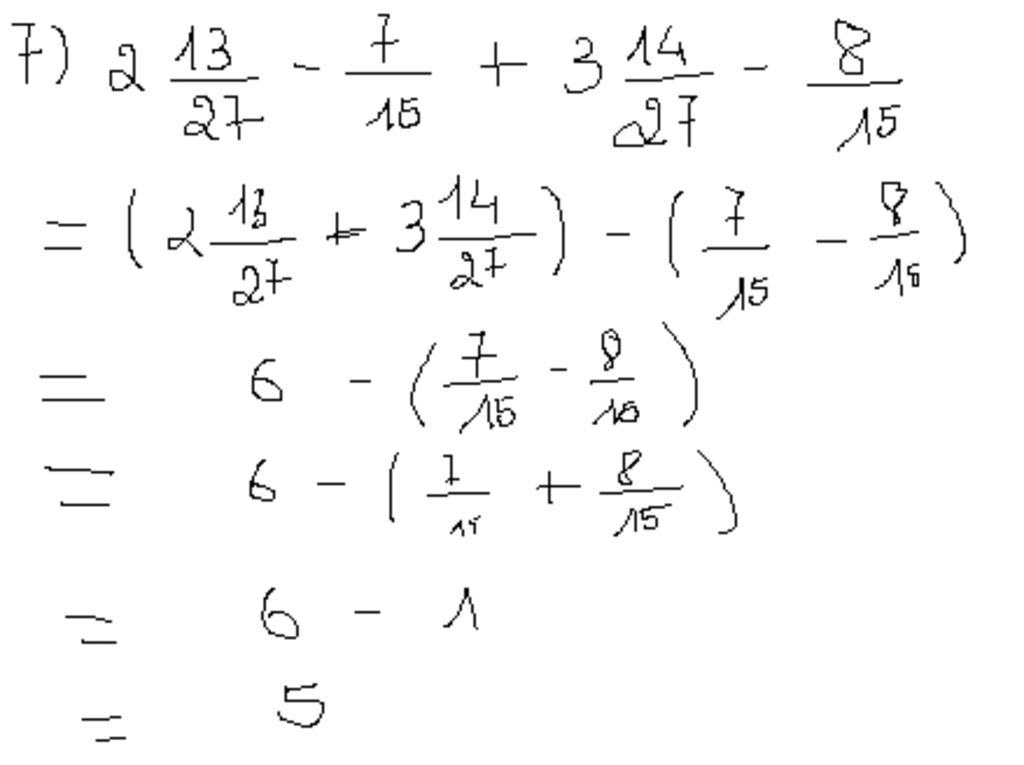 7) 2 13/27 - 7/15 + 3 14/27 - 8/15
= (2 13/27 + 3 14/27) - (7/15 - 8/15)
= 6 - (7/15 - 8/15)
= 6 - (7/15 + 8/15)
= 6 - 1
= 5